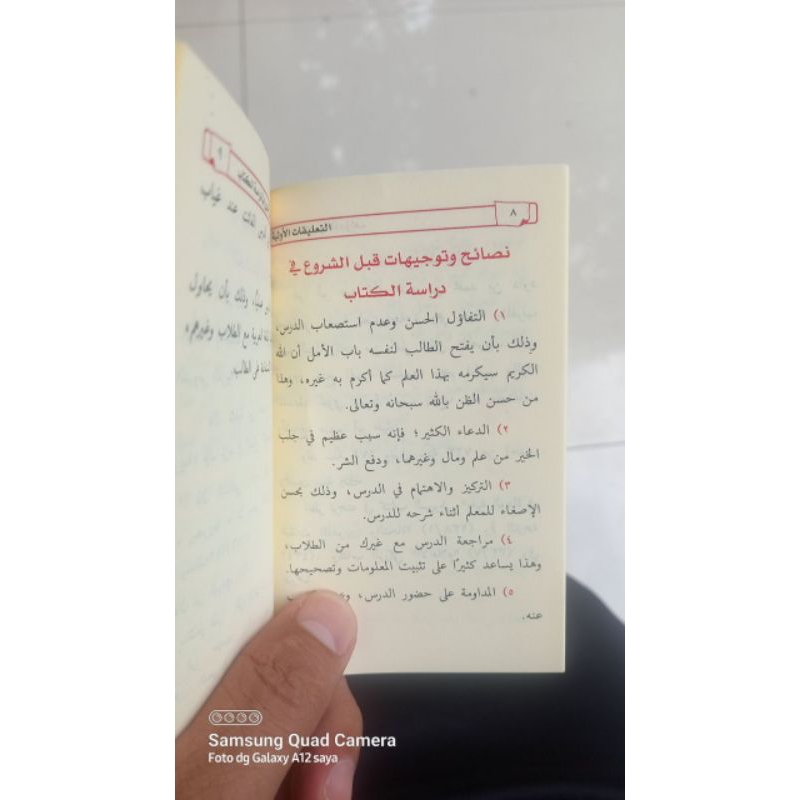 ٨
التعليقات الأولية
نصائح وتوجيهات قبل الشروع في
دراسة الكتاب
١) التفاؤل الحسن وعدم استصعاب الدرس،
وذلك بأن يفتح الطالب لنفسه باب الأمل أن الله
الكريم سيكرمه بهذا العلم كما أكرم به غيره، وهذا
من حسن الظن بالله سبحانه وتعالى.
٢) الدعاء الكثير؛ فإنه سبب عظيم في جلب
الخير من علم ومال وغيرهما، ودفع الشر.
٣) التركيز والاهتمام في الدرس، وذلك بحسن
الإصغاء للمعلم أثناء شرحه للدرس.
٤) مراجعة الدرس مع غيرك من الطلاب،
وهذا يساعد كثيرًا على تثبيت المعلومات وتصحيحها.
٥) المداومة على حضور الدرس،
عنه.
٩
عند غياب
وذلك بأن يحاول
العربية مع الطلاب وغيرهم،
في الطالب.
Samsung Quad Camera
Foto dg Galaxy A12 saya